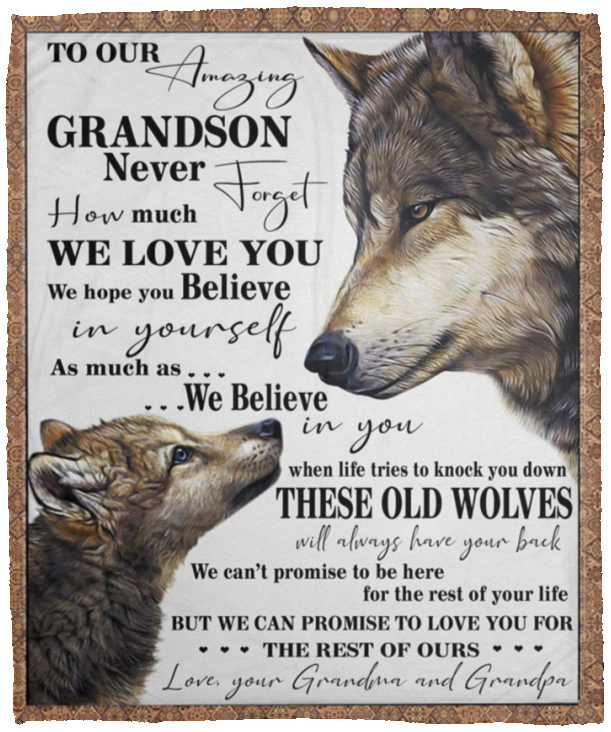 TO OUR Amazing
GRANDSON
Never Forget
How much
WE LOVE YOU
We hope you Believe
in yourself
As much as . . .
. . .We Believe
in you
when life tries to knock you down
THESE OLD WOLVES
will always have your back
We can't promise to be here
for the rest of your life
BUT WE CAN PROMISE TO LOVE YOU FOR
♥ ♥ ♥ THE REST OF OURS ♥ ♥ ♥
Love, your Grandma and Grandpa